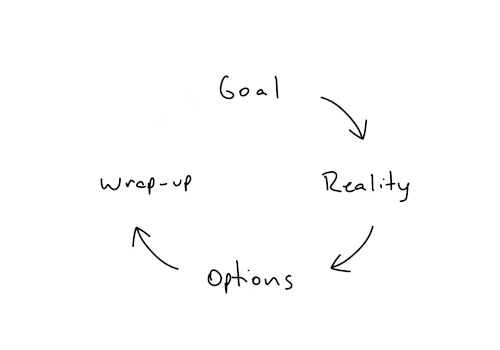 Goal
Reality
Options
Wrap-up